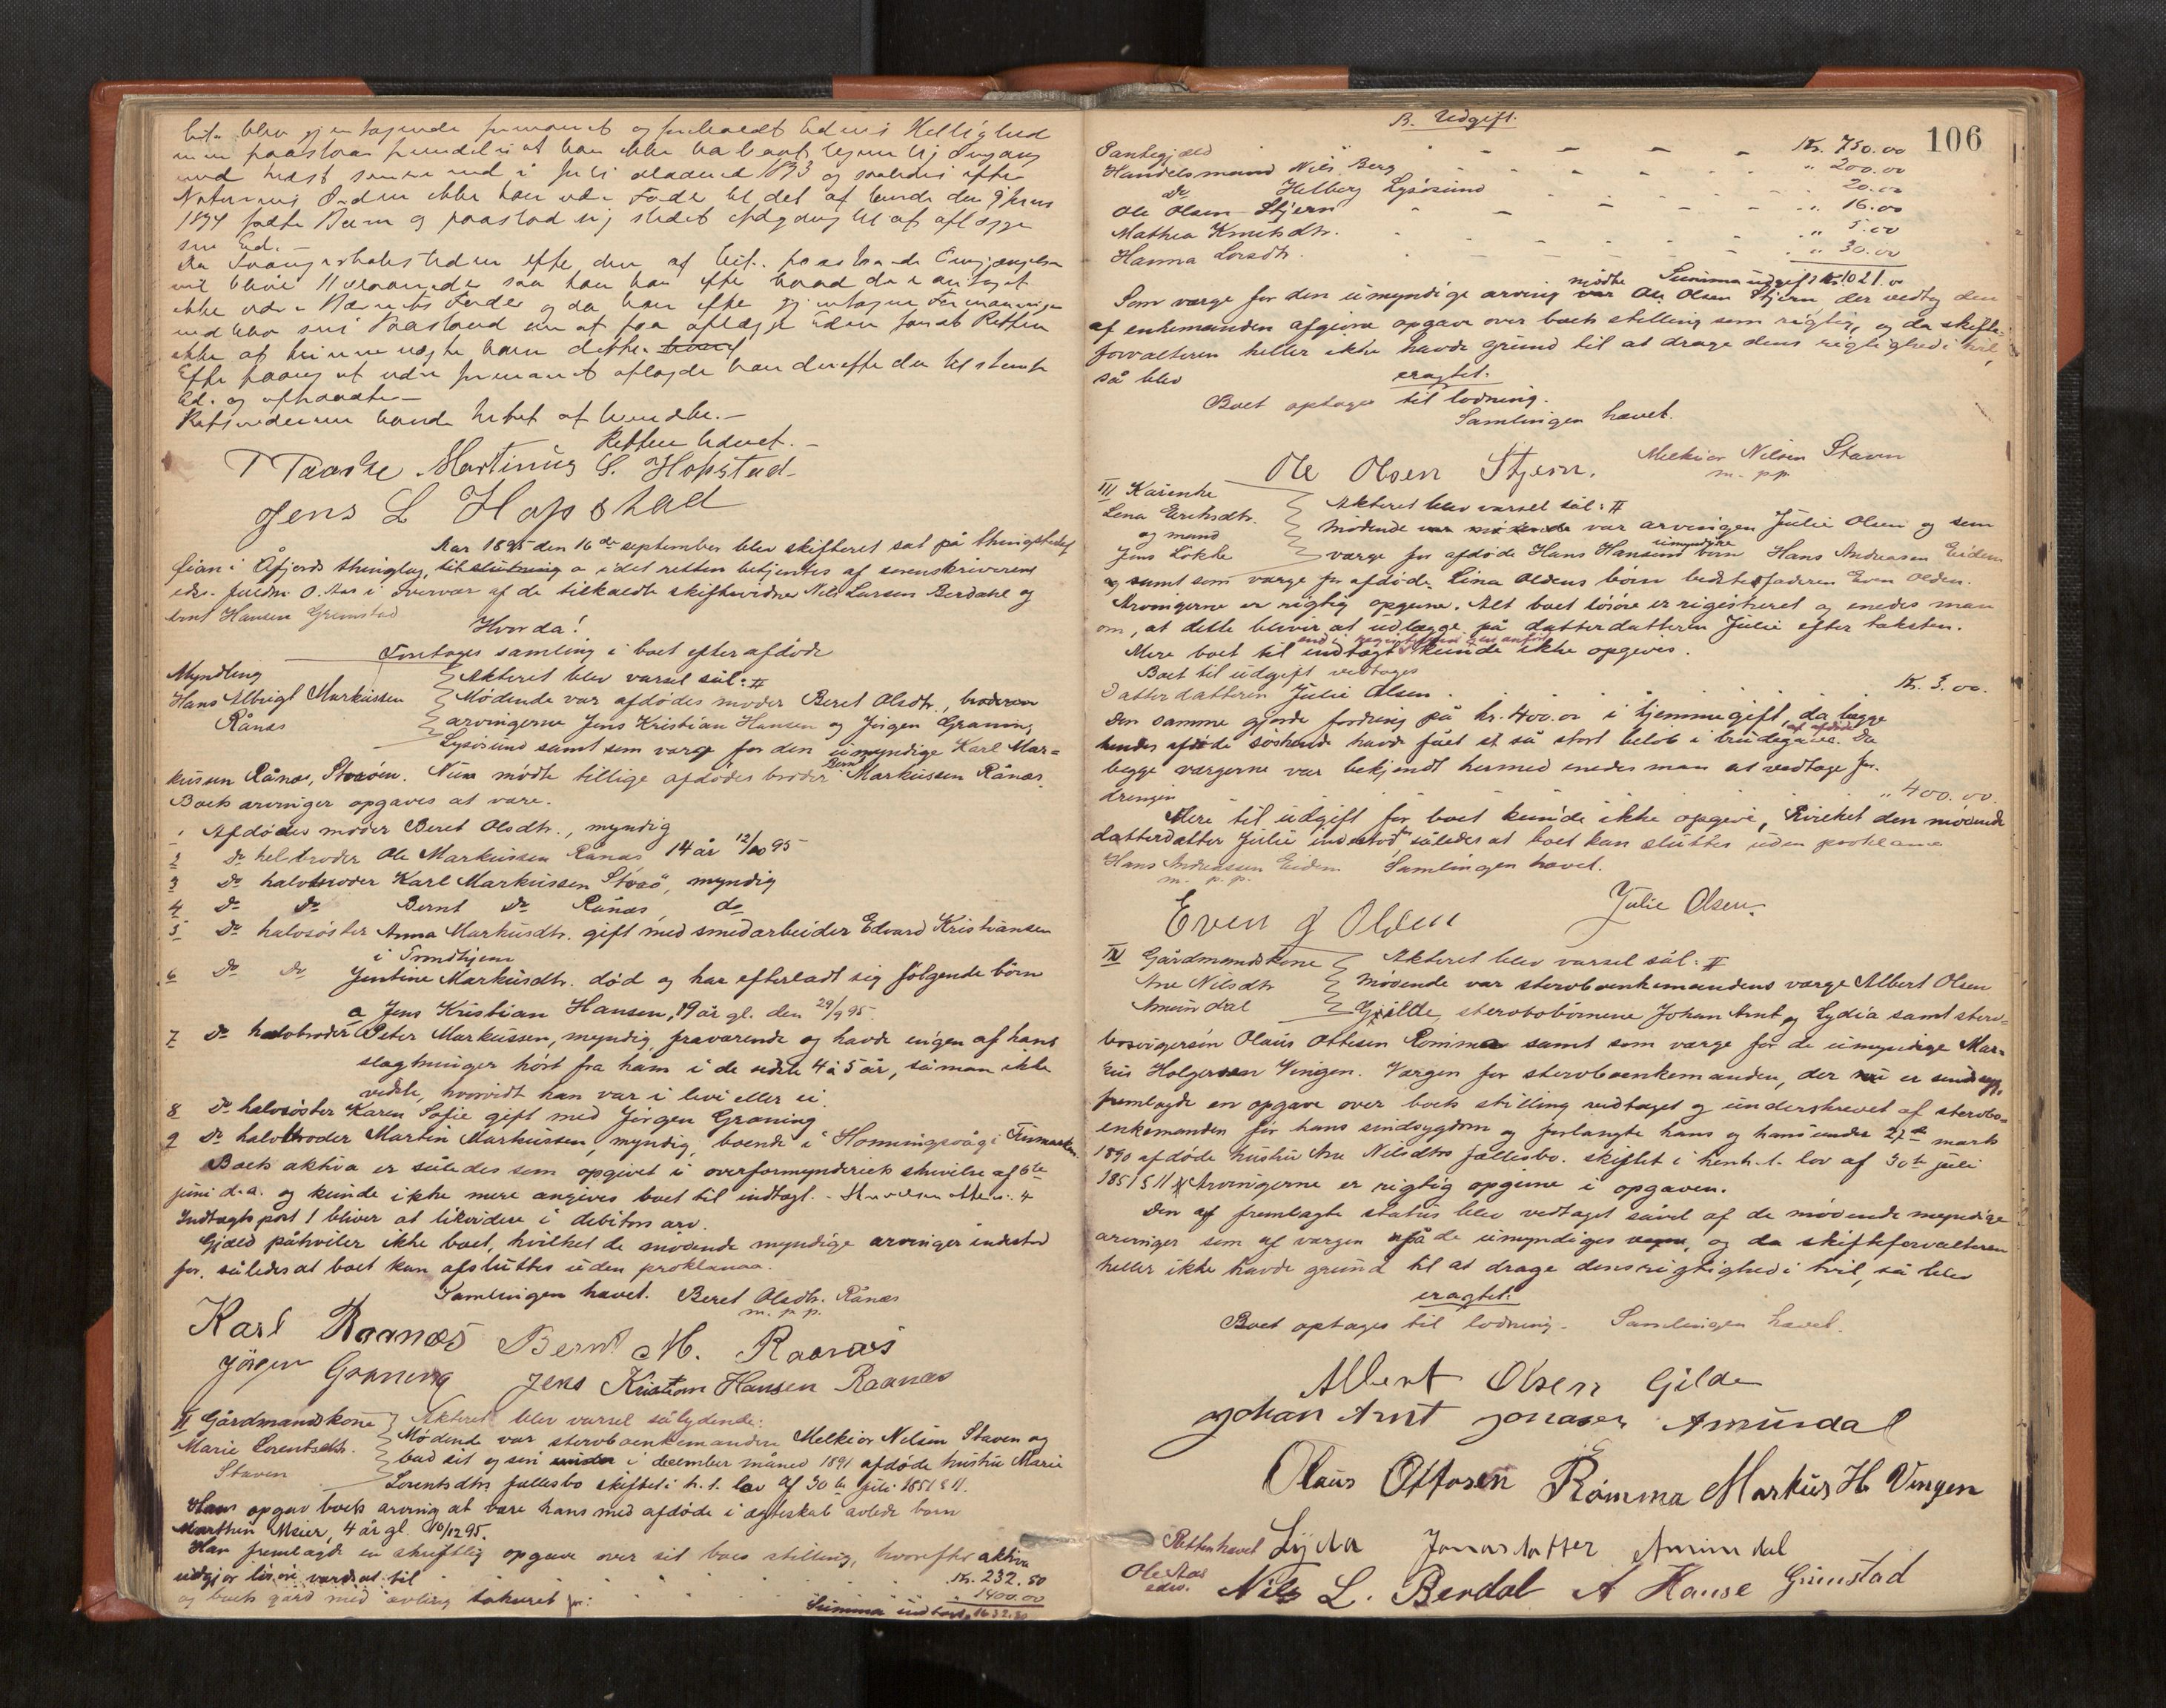 blev gjentagende formanet og foreholdt Edens Hellighed
men paastaar fremdeles at han ikke ha havt legemlig Omgang
med senere end i Juli Maaned 1893 og saaledes efter
Naturens Orden ikke kan være Fader til det af hende den
1894 fødte Barn og paastod sig stedet Adgang til at aflægge
sin Ed. –
Da Svangerskabstiden efter den af paastaaende
vil blive saa kan han efter hvad der er antaget
ikke være Barnets Fader og da han efter gjentagne Formaninger
ved sin Paastand om at faa aflægge Eden fandt Retten
ikke at kunne nægte ham dette.
Efter paany at være formanet aflagde han derefter den bestemte
Ed. og afhørtes –
Retsvidnerne
Retten hævet. –
T Taaske Martinus G. Hopstad
Jens L Hopstad
Aar 1895 den 16de september blev skifteret sat på thingstedet
i Åfjords thinglag, idet retten betjentes af sorenskriverens
edsv. fuldm. O. Aas i overvær af de tilkaldte skiftevidner Nils Larsen Berdahl og
Arnt Hansen Grimstad
Hvorda:
Foretoges samling i boet efter afdøde
Myndling
Hans Albrigt Markussen
Rånæs
Akteret blev varsel sål: #
Mødende var afdødes moder Beret Olsdtr., broderen
arvingerne Jens Kristian Hansen og Jørgen Graning
Lysøsund samt som værge for den umyndige Karl Mar-
kussen Rånæs, Storøen. Nu mødte tillige afdødes broder Bernt Markussen Rånæs.
Boets arvinger opgaves at være.
1 Afdødes moder Beret Olsdtr., myndig
2 Do helbroder Ole Markussen Rånæs 14 år 12/10 95
3 Do halvbroder Karl Markussen Storø, myndig
4 Do Do Bernt Do Rånæs do
5 Do halvsøster Anna Markusdtr. gift med smedarbeider Edvard Kristiansen
i Trondhjem
6 Do Do Jentine Markusdtr. død og har efterladt sig følgende børn
a Jens Kristian Hansen, 19 år gl. den 29/9 95.
7 Do halvbroder Peter Markussen, myndig, fraværende og havde ingen af hans
slægtninger hørt fra ham i de sidste 4 à 5 år, så man ikke
vidste, hvorvidt han var i live eller ei.
8 Do halvsøster Karen Sofie gift med Jørgen Graning
9 Do halvbroder Martin Markussen, myndig, boende i Honningsvåg i Finmarken
Boets aktiva er således som opgivet i overformynderiets skrivelse af 6te
juni d.a. og kunde ikke mere angives boet til indtægt. –
Indtægtspost 1 bliver at likvidere i debitors arv.
Gjæld påhviler ikke boet, hvilket de mødende myndige arvinger indestod
for, således at boet kan afsluttes uden proklama.
Samlingen hævet. Beret Olsdtr. Rånæs
m. p. p.
Karl Raanæs Bernt M. Raanæs
Jörgen Graning Jens Kristian Hansen Raanæs
II Gårdmandskone
Marie Lorentsdtr.
Staven
Akteret blev varsel sålydende:
Mødende var stervboenkemanden Melkior Nilsen Staven og
bad sit og sin i december måned 1891 afdøde hustru Marie
Lorentsdtrs fællesbo skiftet i h. t. lov af 30te juli 1851 § 11.
Han opgav boets arving at være hans med afdøde i ægteskab avlede barn
Marthin Meier, 4 år gl. 10/12 95.
Han fremlagde en skriftlig opgave over sit boes stilling, hvorefter aktiva
udgjør løsøre værdsat til . . . Kr. 232.50
og boets gård med avling takseret for: . . . " 1400.00
Summa indtægt 1632.50
106
B. Udgift.
Pantegjæld – – – – Kr. 750.00
Handelsmand Nils Berg – – – " 200.00
do Helberg Lysøsund – – – 20.00
Ole Olsen Stjern – – – " 16.00
Mathea Knutsdtr. – – – " 5.00
Hanna Lorsdtr. – – – " 30.00
Summa udgift Kr. 1021.00
Som værge for den umyndige arving mødte Ole Olsen Stjern, der vedtog den
af enkemanden afgivne opgave over boets stilling som rigtig, og da skifte-
forvalteren heller ikke havde grund til at drage dens rigtighed i tvil,
så blev
eragtet:
Boet optages til lodning.
Samlingen hævet.
Ole Olsen Stjern. Melkior Nilsen Staven
m. p. p.
III Kårenke
Lena Eriksdtr.
og mand
Jens Lökke
Akteret blev varsel sål: #
Mødende var arvingen Julie Olsen og som
værge for afdøde Hans Hansens umyndige børn Hans Andreasen Eidem
og samt som værge for afdøde Lina Oldens børn bedstefaderen Even Olden.
Arvingerne er rigtig opgivne. Alt boet løsøre er registreret og enedes man
om, at dette bliver at udlægge på datterdatteren Julie efter taksten.
Mere boet til indtægt kunde ikke opgives.
Boet til udgift vedtoges
Datterdatteren Julie Olsen . Kr. 3.00.
Den samme gjorde fordring på kr. 400.00 i hjemmegift, da begge
hendes afdøde søskende havde fået et så stort beløb i brudegave af afdøde. Da
begge værgerne var bekjendt hermed enedes man at vedtage for-
dringen . . . " 400.00.
Mere til udgift for boet kunde ikke opgives, hvilket den mødende
datterdatter Julie indestod for, således at boet kan sluttes uden proklama
Hans Andreassen Eidem Samlingen hævet.
m. p. p.
Even J Olden Julie Olsen.
IV Gårdmandskone
Ane Nilsdtr
Amundal
Akteret blev varsel sål: #
Mødende var stervboenkemandens værge Albert Olsen
Gjilde, stervbobörnene Johan Arnt og Lydia samt sterv-
bosvigersøn Olaus Ottesen Rømma samt som værge for de umyndige Mar-
kus Holgersen Vingen. Værgen for stervboenkemanden, der nu er sindssyg,
fremlagde en opgave over boets stilling vedtaget og underskrevet af stervbo-
enkemanden før hans sindsygdom og forlangte hans og hans under 27de marts
1890 afdøde hustru Ane Nilsdtrs fællesbo skiftet i henh. t. lov af 30te juli
1851 § 11. Arvingerne er rigtig opgivne i opgaven.
Den fremlagte status blev vedtaget såvel af de mødende myndige
arvinger som af værgen på de umyndiges vegne, og da skifteforvalteren
heller ikke havde grund til at drage dens rigtighed i tvil, så blev
eragtet:
Boet optages til lodning. – Samlingen hævet.
Albert Olsen Gilde
Johan Arnt Jonasen Amundal
Olaus Ottosen Römma Markus H. Vingen
Retten hævet Lyda Jonasdatter Amundal
Ole Aas
edsv. Nils L. Berdal A Hanse Grimstad